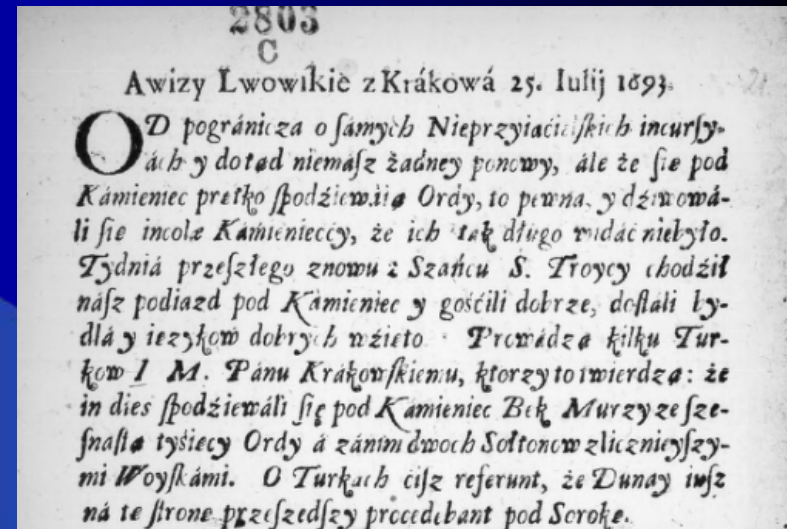 2803
C
Awizy Lwowſkie z Krákowá 25. Iulij 1693.
OD pogránicza o ſámych Nieprzyiaćielſkich incurſy-
ách y dotąd niemáſz żadney ponowy, ále że ſie pod
Kámieniec prętko ſpodźiewáią Ordy, to pewna, y dźiwowá-
li ſie incolæ Kámienieccy, że ich ták długo widáć niebyło.
Tydniá przeſzłego znowu z Száńcu S. Troycy chodźił
náſz podiazd pod Kámieniec y gośćili dobrze, doſtáli by-
dłá y ięzykow dobrych wźięto. Prowádzą kilku Tur-
kow I M. Pánu Krákowſkiemu, ktorzy to twierdzą: że
in dies ſpodźiewáli ſię pod Kámieniec Bek Murzy ze ſze-
ſnaſtą tyśięcy Ordy á zánim dwoch Sołtonow z licznieyſzy-
mi Woyſkámi. O Turkách ciſz referunt, że Dunay iuſz
ná tę ſtronę przeſzedſzy procedebant pod Sorokę.